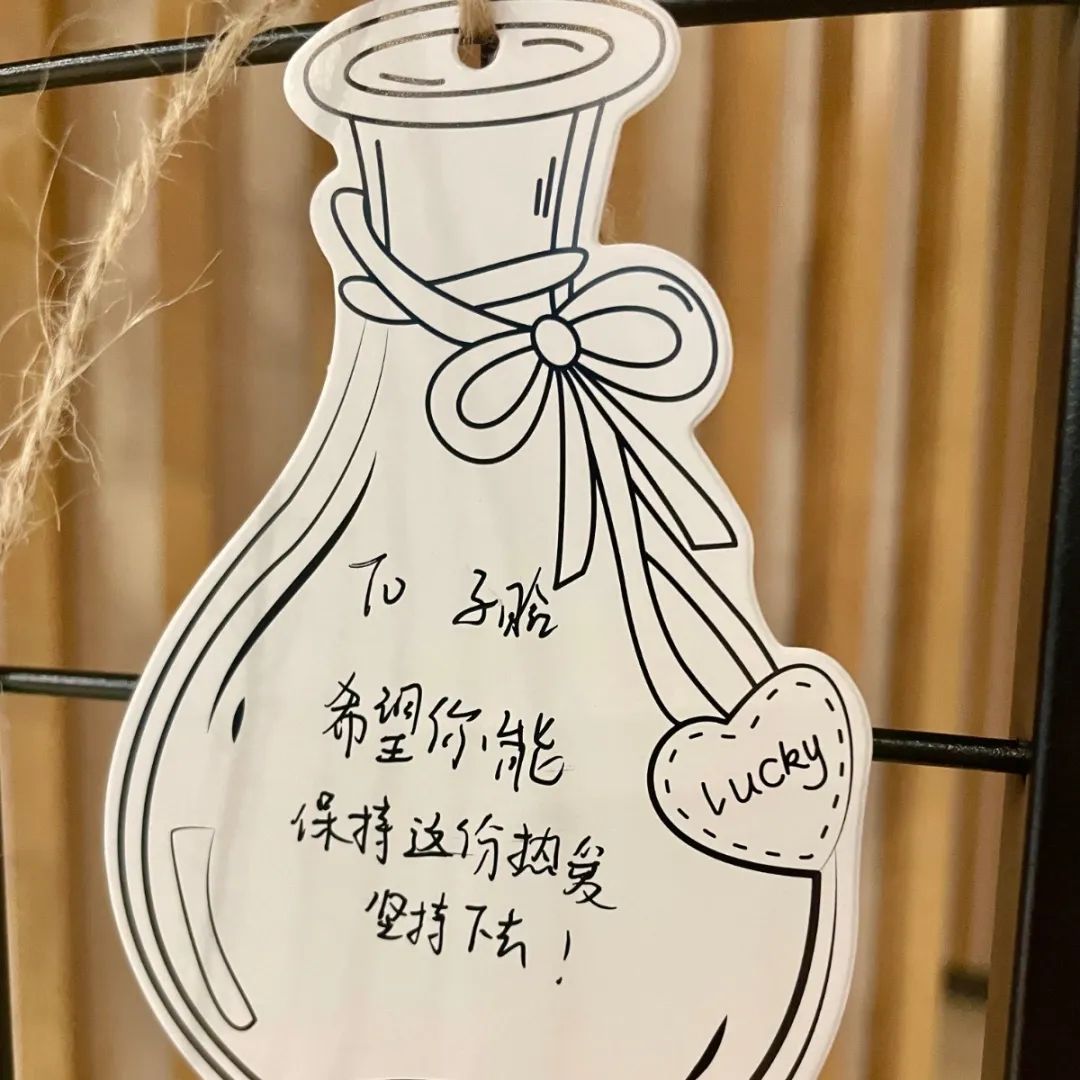 To 子晗
希望你能
保持这份热爱
坚持下去！
Lucky